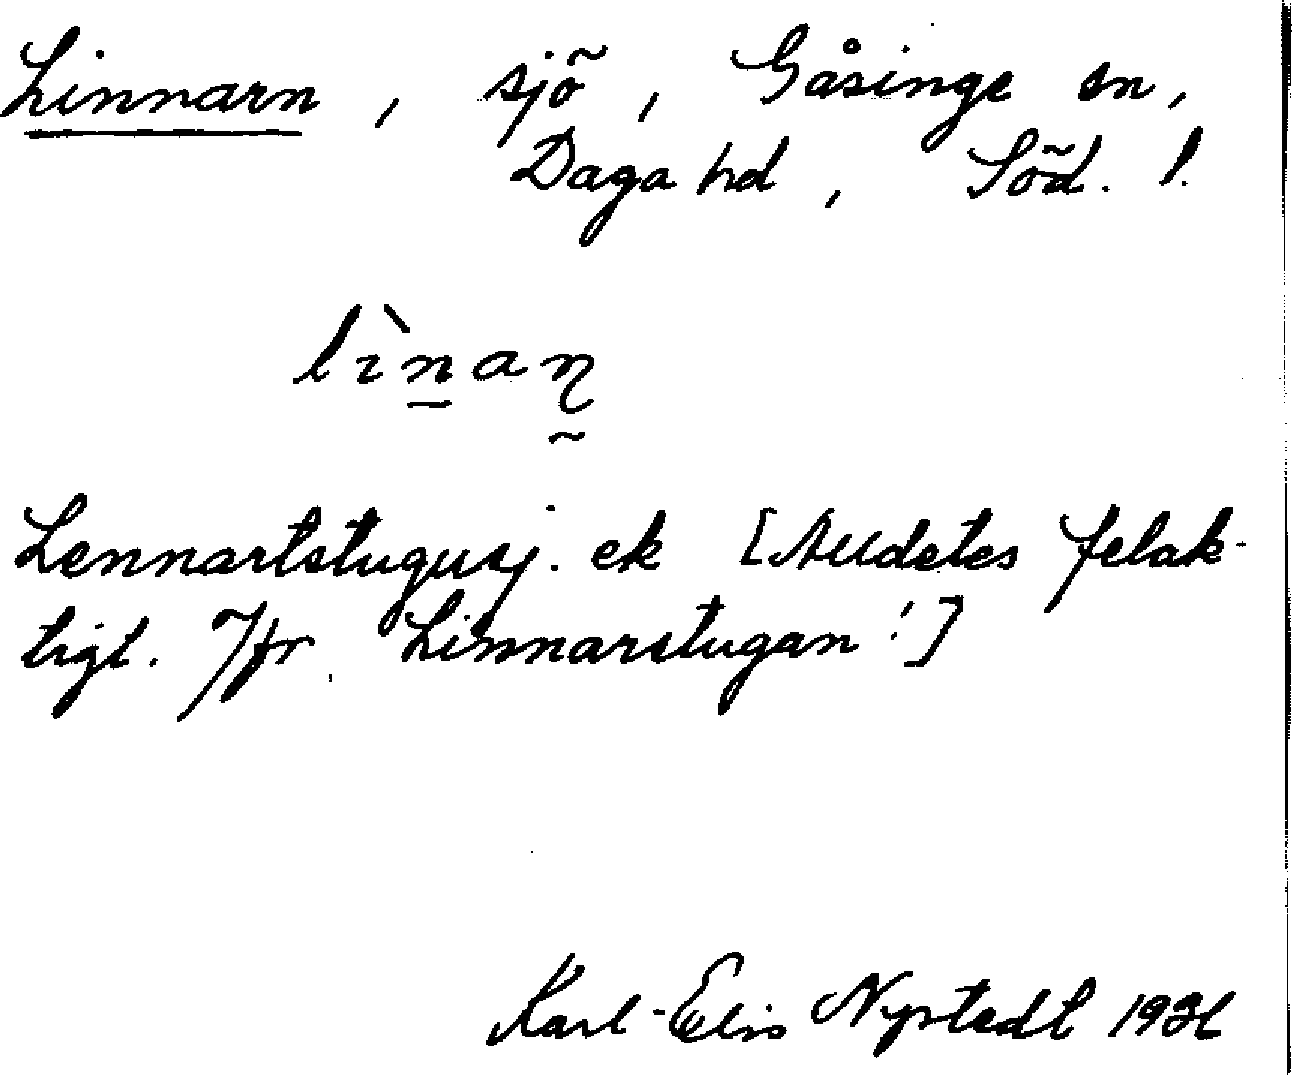 Linnarn, sjö, Gåsinge sn,
Daga hd, Söd. l.
lìnaɳ
Lennartstugusj. ek [Alldeles felak-
tigt. Jfr Linnarstugan!]
Karl-Elis Nystedt 1936